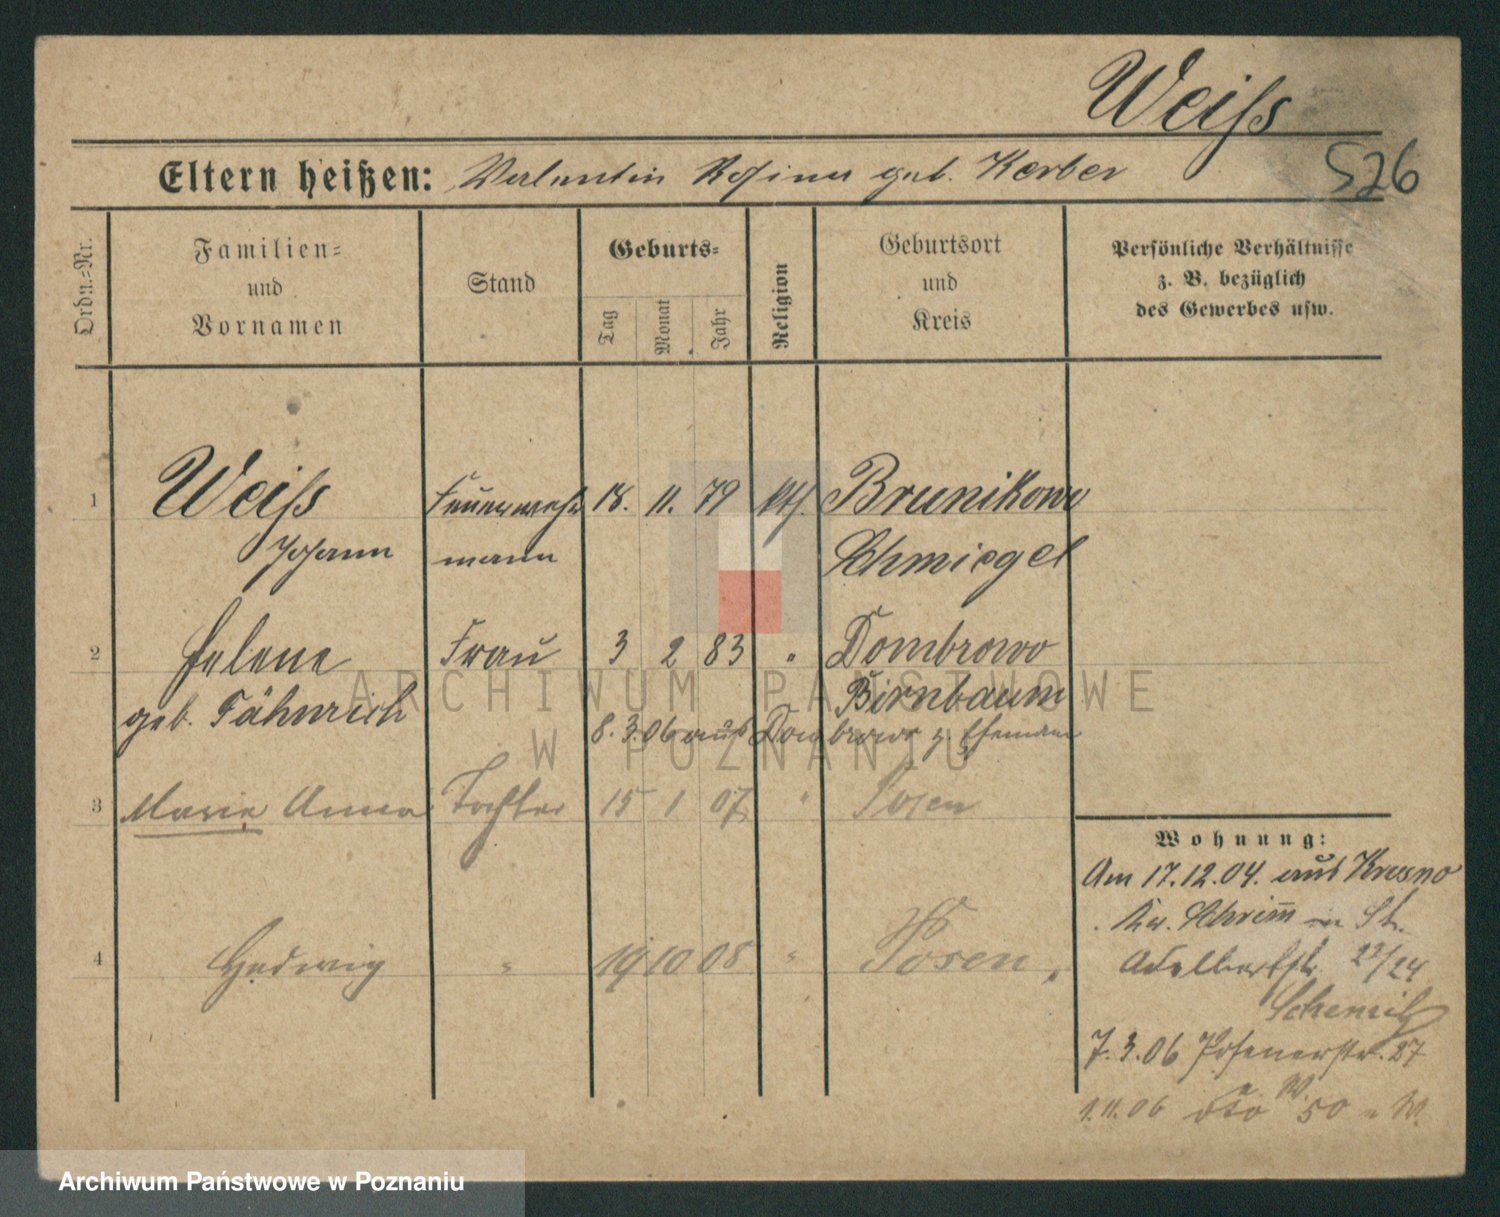 Weiss
Eltern heißen: Valentin Rosina geb. Kerber
526
Ordn.=Nr.
Familien=
und
Vornamen
Stand
Geburts=
Tag
Monat
Jahr
Religion
Geburtsort
und
Kreis
Persönliche Verhältnisse
z. B. bezüglich
des Gewerbes usw.
1 Weiss Feuerwehr 18. 11. 79 kth. Brunikowo
Johann mann Schmiegel
2 Helene Frau 3 2 83 " Dombrowo
geb. Fähnrich Birnbaum
8.3.06 aus Dombrowo z. Ehemann
3 Marie Anna Tochter 15 1 07 " Posen
4 Hedwig " 19 10 08 " Posen
Wohnung:
Am 17.12.04. aus Krosno
Kr. Schrimm St.
Adalbertstr. 23/24
7.3.06 Posenerstr. 27
1.11.06 dto 50 W.
ARCHIWUM PAŃSTWOWE
W POZNANIU
Archiwum Państwowe w Poznaniu